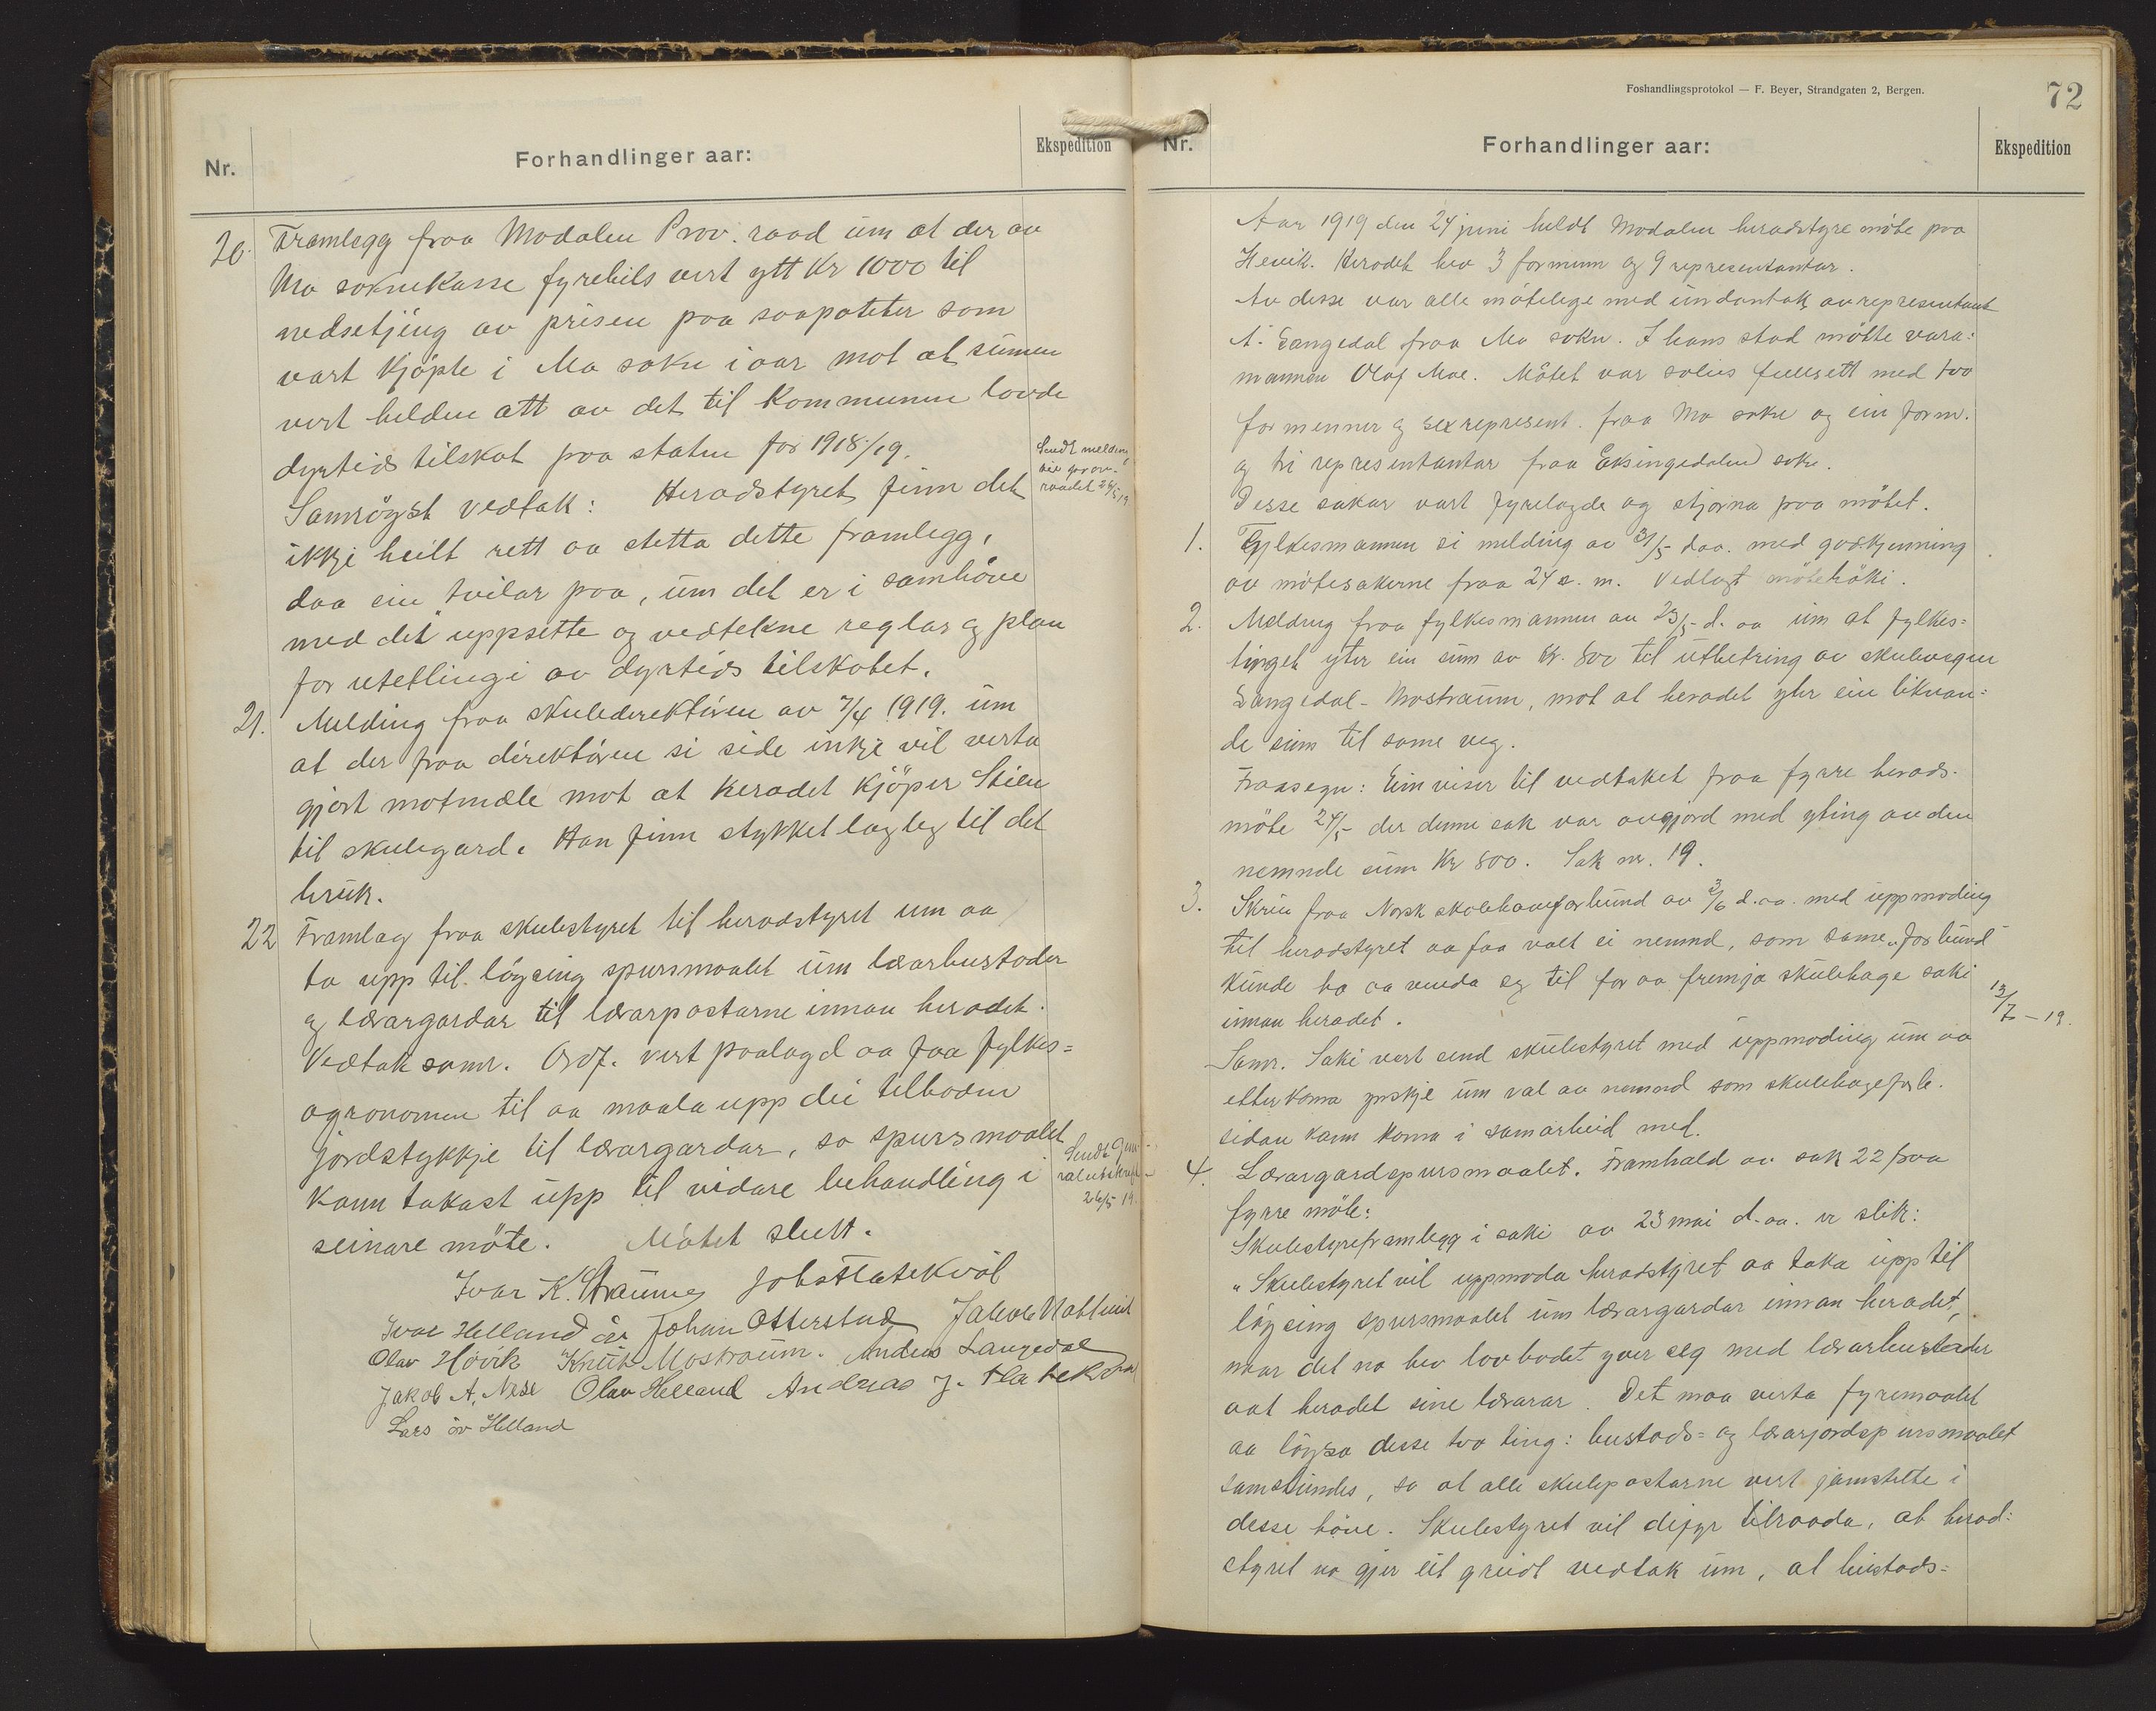 Nr.
Forhandlinger aar:
Ekspedition
20. Framlegg fraa Modalen Prov. raad um at der av
Mo soknekasse fyrebils vert ytt Kr 1000 til
nedsetjing av prisen paa saapoteter som
vart kjöpte i Mo sokn i aar mot at sumen
vert helden att av det til Kommunen lovde
dyrtids tilskot fraa staten for 1918/19.
Samröyst vedtak: Heradstyret finn det
Sendt melding
til prov.
raadet 26/5 19
ikkje heilt rett aa stetta dette framlegg,
daa ein tvilar paa, um det er i samhöve
med dei uppsette og vedtekne reglar og plan
for utetlingi av dyrtids tilskotet.
21. Melding fraa skuledirektören av 7/4 1919. um
at der fraa direktören si side inkje vil verta
gjort motmæle mot at heradet kjöper Stien
til skulegard. Han finn stykket lagleg til det
bruk.
22 Framlag fraa skulestyret til heradstyret um aa
ta upp til löysing spursmaalet um lærarbustader
og lærargardar til lærarpostarne innan heradet.
Vedtak samr. Ordf. vert paalagd aa faa fylkes=
agronomen til aa maala upp dei tilbodne
jordstykkje til lærargardar, so spursmaalet
kann takast upp til vidare behandling i
seinare möte. Mötet slutt.
Sendt
26/5 19.
Ivar K. Straume
Ivar Helland Johan Otterstad Jakob
Olav Hövik Knut Mostraum. Anders Langedal
Jakob A. Nese Olav Helland Andreas J.
Lars öv Helland
Foshandlingsprotokol — F. Beyer, Strandgaten 2, Bergen.
72
Nr.
Forhandlinger aar:
Ekspedition
Aar 1919 den 24 juni heldt Modalen heradstyre möte paa
Hevik. Heradet hev 3 formenn og 9 representantar.
Av desse var alle mötelege med undantak av representant
A. Langedal fraa Mo sokn. I hans stad mötte vara=
mannen Olaf Moe. Mötet var soleis fullsett med tvo
formenner og sex represent. fraa Mo sokn og ein form.
og tri representantar fraa Eksingedalen sokn.
Desse sakar vart fyrelagde og stjorna paa mötet.
1. Fylkesmannen si melding av 31/5 daa. med godkjenning
av mötesakerne fraa 24 s. m. Vedlagt möteböki.
2. Melding fraa fylkesmannen av 23/5 d. aa um at fylkes=
tinget yter ein sum av Kr. 800 til utbetring av skulevegen
Langedal - Mostraum, mot at heradet yter ein liknan=
de sum til same veg.
Fraasegn: Ein viser til vedtaket fraa fyrre herads-
möte 24/5 der denne sak var avgjord med yting av den
nemnde sum Kr 800. Sak nr. 19.
3. Skriv fraa Norsk skolehaveforbund av 3/6 d.aa. med uppmoding
til heradstyret aa faa valt ei nemnd, som same „forbund"
kunde ha aa venda seg til for aa fremja skulehage saki
innan heradet.
13/7 - 19.
Samr. Saki vert send skulestyret med uppmoding um aa
etterkoma ynskje um val av nemnd som skulehageforb.
sidan kann koma i samarbeid med.
4. Lærargardspursmaalet. Framhald av sak 22 fraa
fyrre möte:
Skulestyreframlegg i saki av 23 mai d. aa. er slik:
„Skulestyret vil uppmoda heradstyret aa taka upp til
löysing spursmaalet um lærargardar innan heradet,
naar det no hev lovbodet yver seg med lærarbustader
aat heradet sine lærarar. Det maa verta fyremaalet
aa löysa desse tvo ting: bustads= og lærarjordspursmaalet
samstundes, so at alle skulepostarne vert jamstelte i
desse höve. Skulestyret vil difyr tilraada, at herad=
styret no gjer eit greidt vedtak um, at bustads=